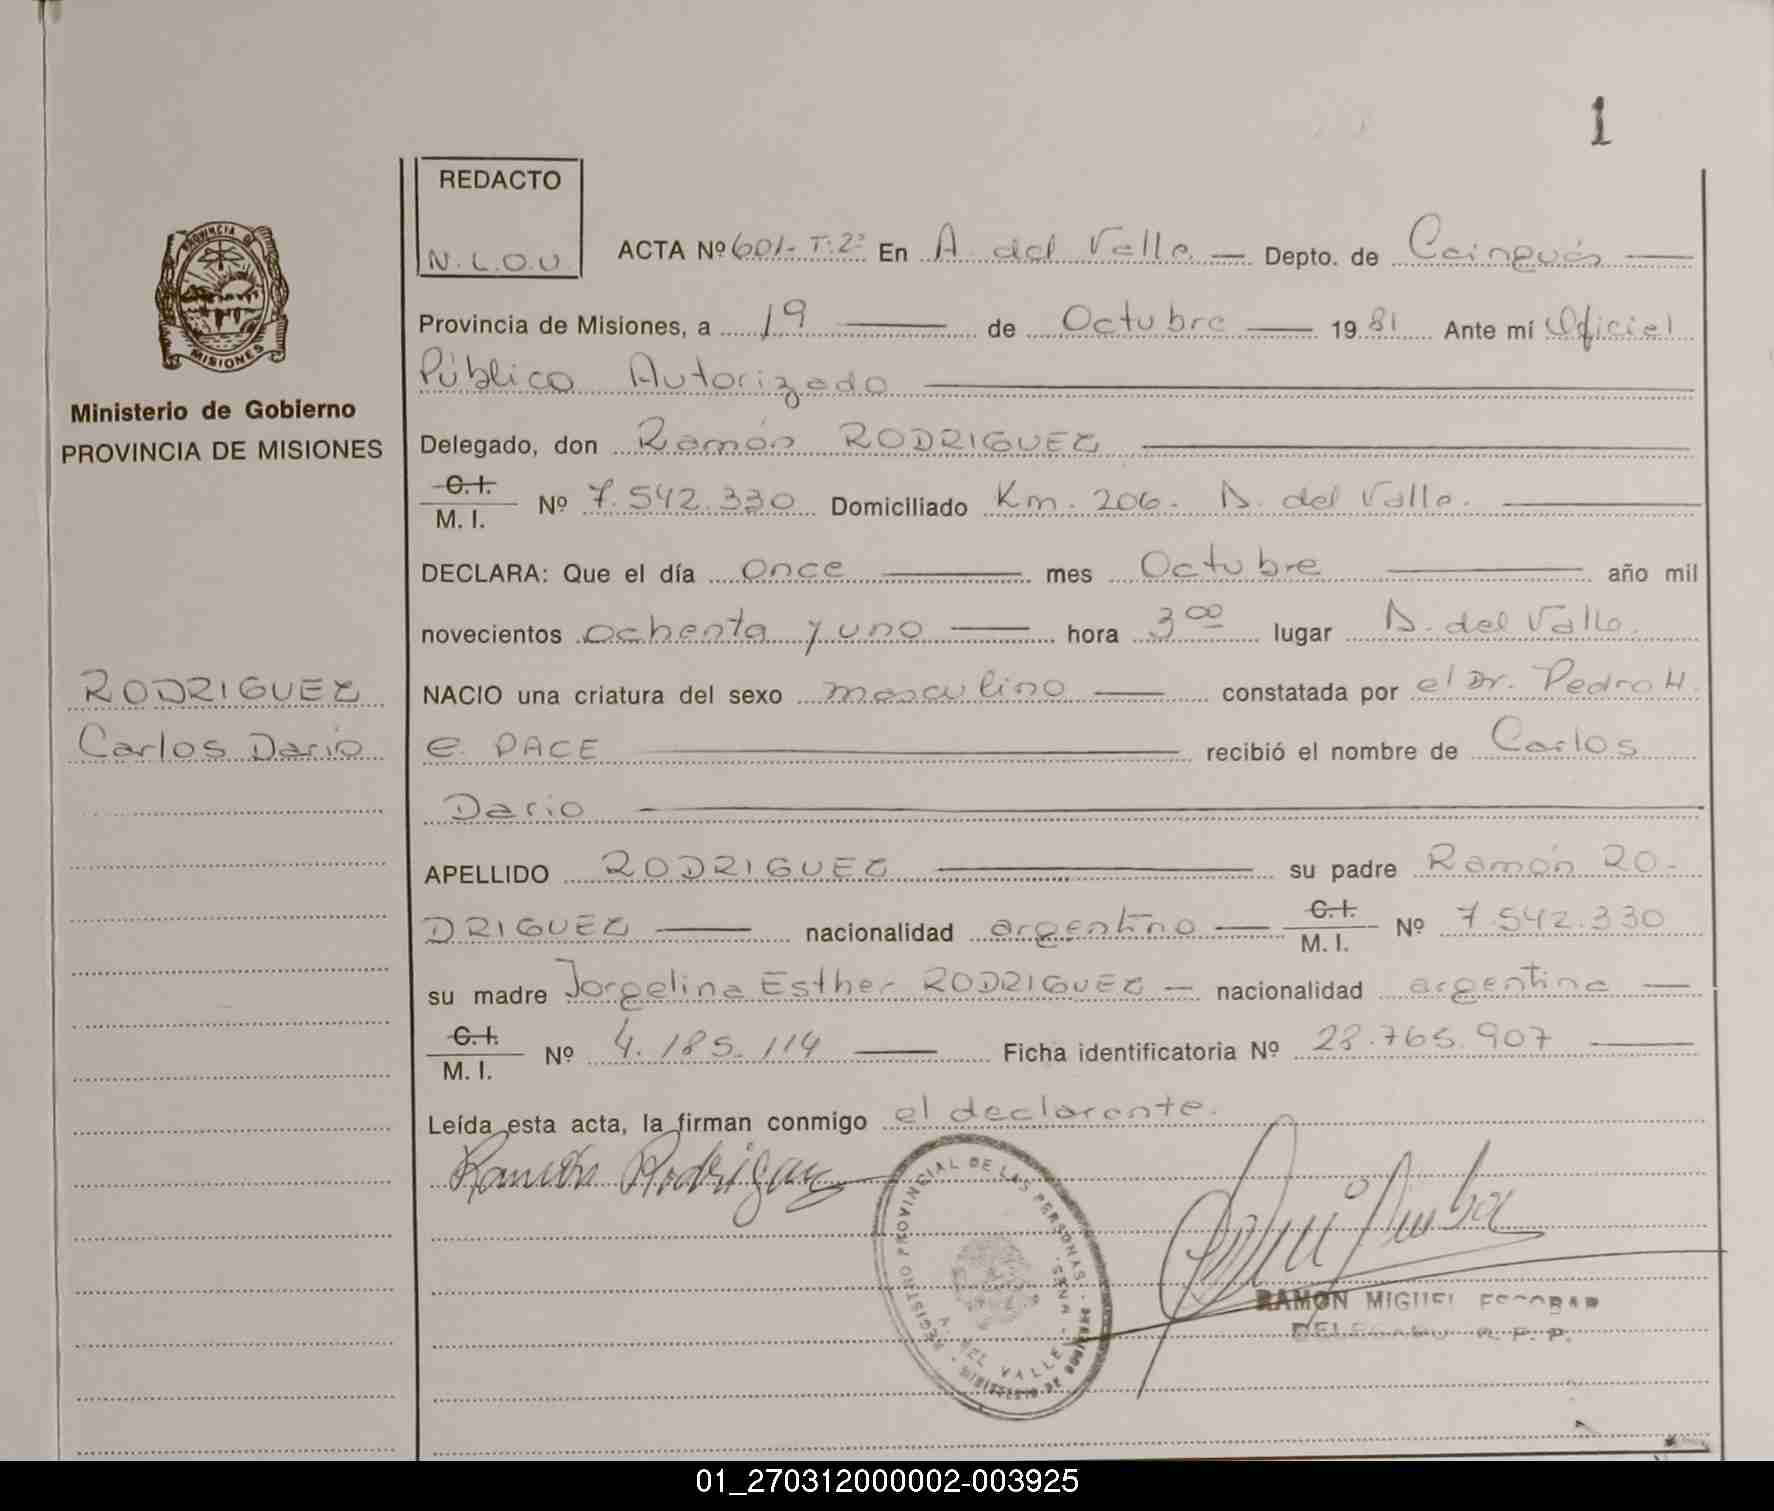 1
REDACTO
N.L.O.U.
ACTA Nº 601- T: 2º En A. del Valle — Depto. de Cainguás —
PROVINCIA DE
MISIONES
Provincia de Misiones, a 19 — de Octubre — 19 81 Ante mí Oficial
Público Autorizado
Ministerio de Gobierno
PROVINCIA DE MISIONES
Delegado, don Ramón RODRIGUEZ
C.I.
M. I. Nº 7.542.330 Domiciliado Km. 206- A. del Valle.
DECLARA: Que el día once — mes Octubre — año mil
novecientos ochenta y uno — hora 3 00 lugar A. del Valle.
RODRIGUEZ
Carlos Dario
NACIO una criatura del sexo masculino — constatada por el Dr. Pedro H.
e. PACE — recibió el nombre de Carlos
Dario
APELLIDO RODRIGUEZ — su padre Ramón RO-
DRIGUEZ — nacionalidad argentino — C.I. M. I. Nº 7.542.330
su madre Jorgelina Esther RODRIGUEZ — nacionalidad argentina —
C.I.
M. I. Nº 4.185.114 — Ficha identificatoria Nº 28.765.907 —
Leída esta acta, la firman conmigo el declarante.
Ramón Rodriguez
REGISTRO PROVINCIAL DE LAS PERSONAS
A. DEL VALLE - MNES.
MINISTERIO DE
RAMON MIGUEL ESCOBAR
DELEGADO R. P. P.
01_270312000002-003925